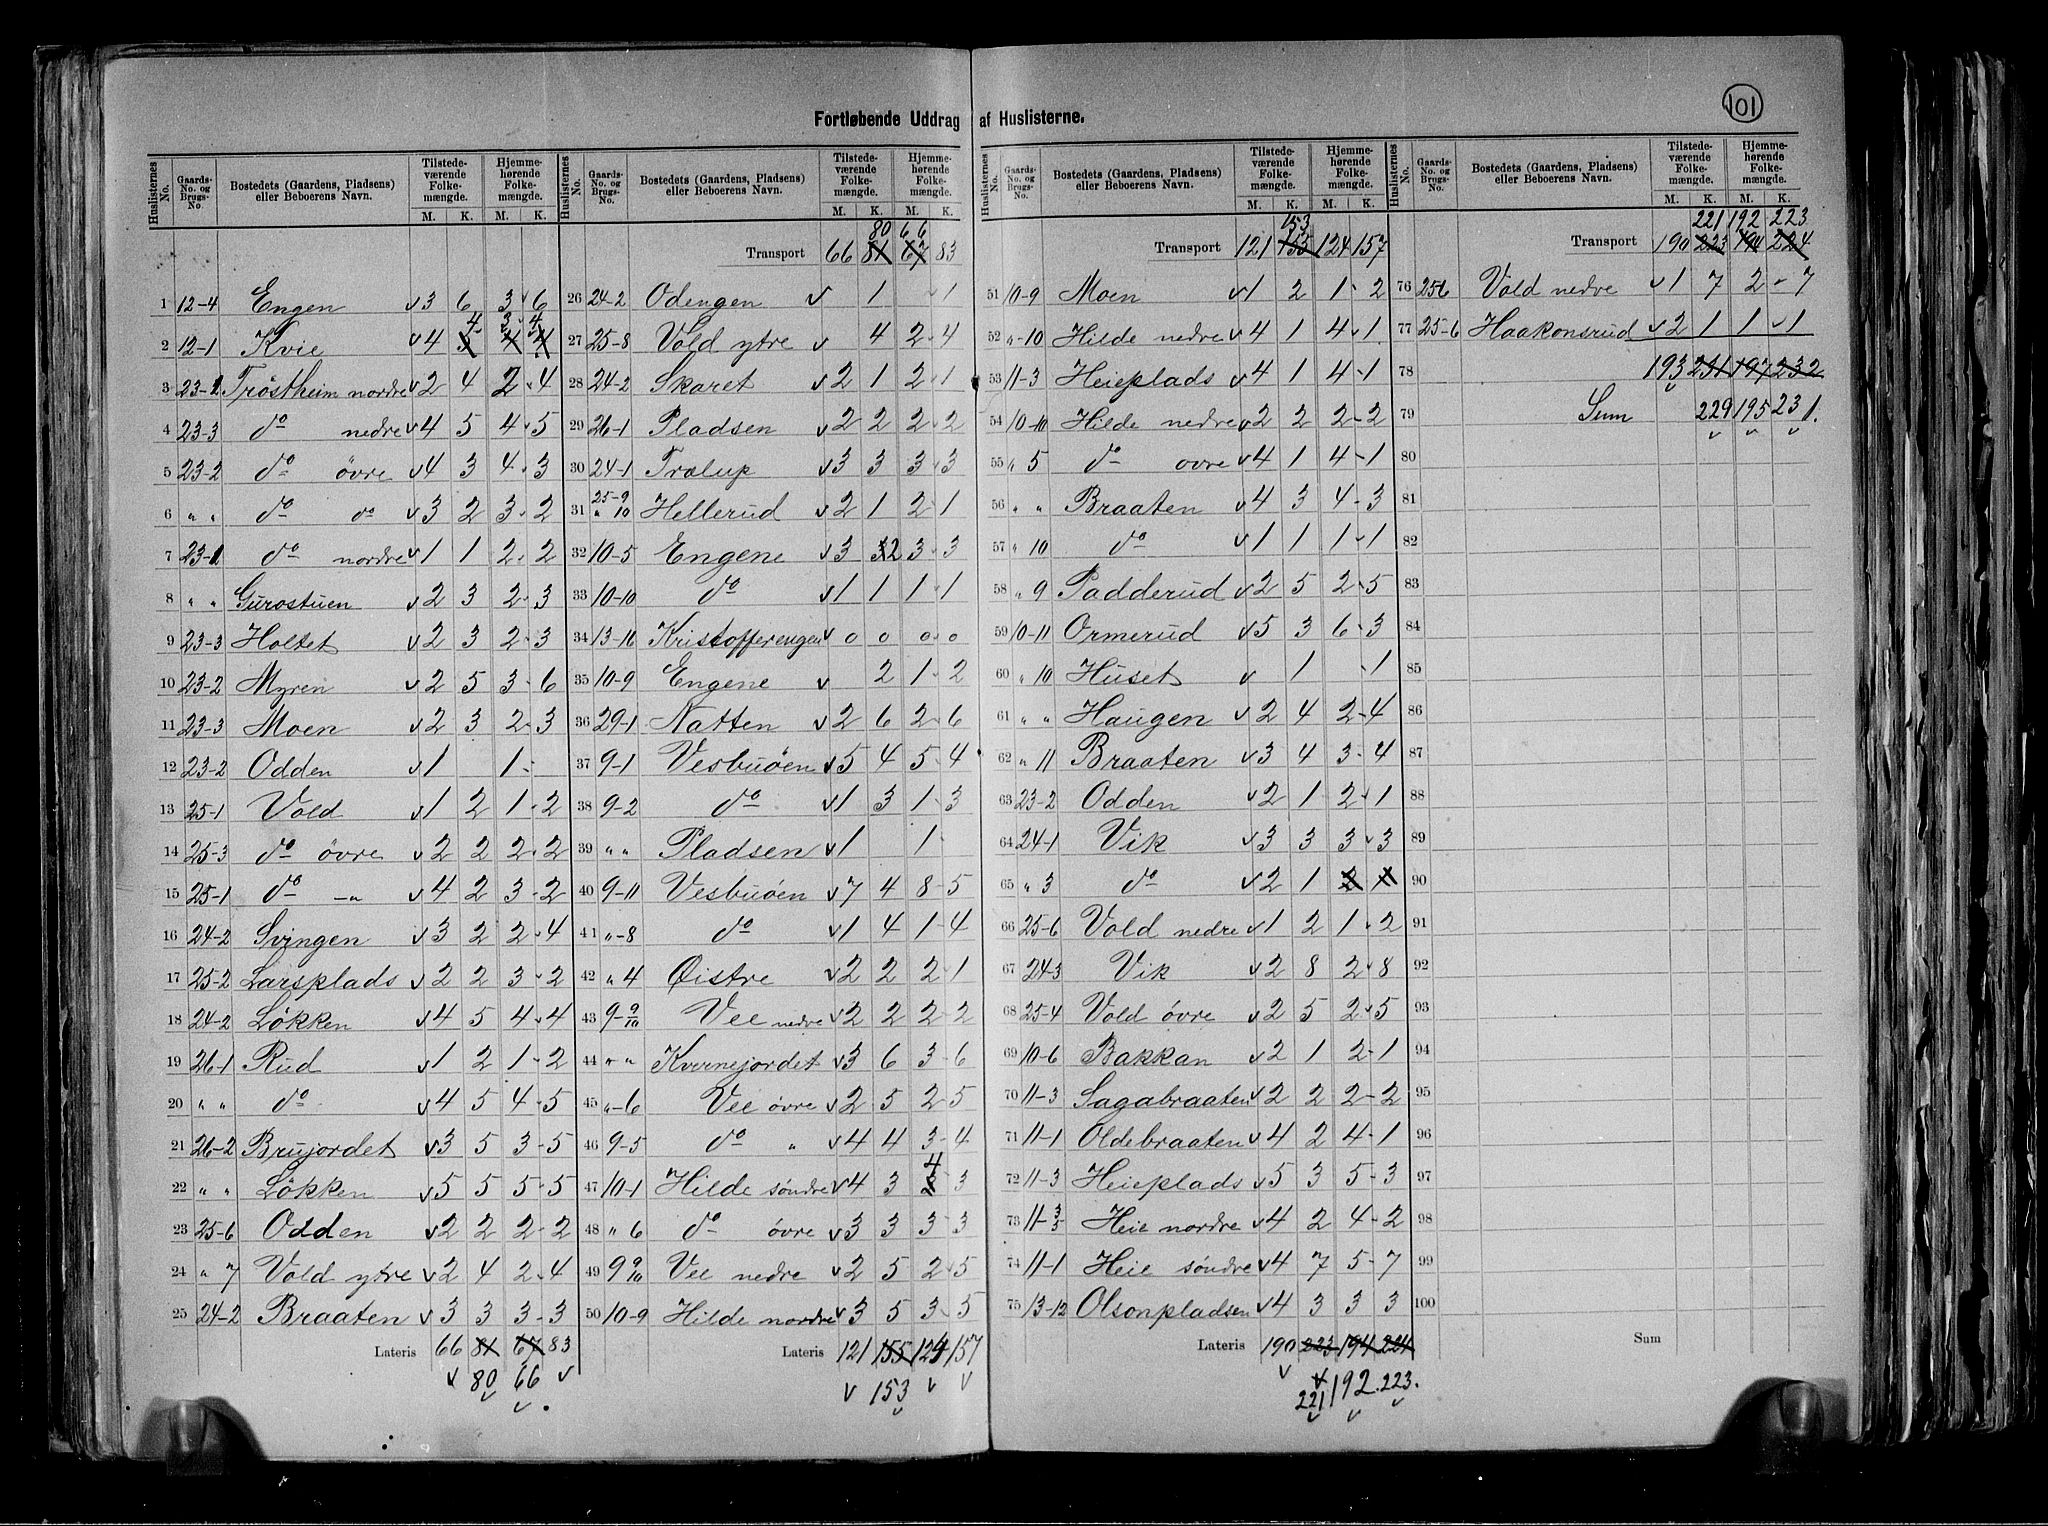 101
Fortløbende Uddrag af Huslisterne.
Huslisternes No. Gaards-No. og Brugs-No. Bostedets (Gaardens, Pladsens) eller Beboerens Navn. Tilstedeværende Folkemængde. M. K. Hjemmehørende Folkemængde. M. K.
1 12-4 Engen v3 6 3 6
2 12-1 Kvie v4 4 3 4
3 23-1 Tröstheim nordre v2 4 2 4
4 23-3 do nedre v4 5 4 5
5 23-2 do övre v4 3 4 3
6 " " do do v3 2 3 2
7 23-1 do nordre v1 1 2 2
8 " " Gurostuen v2 3 2 3
9 23-3 Holtet v2 3 2 3
10 23-2 Myren v2 5 3 6
11 23-3 Moen v2 3 2 3
12 23-2 Odden v1 1 -
13 25-1 Vold v1 2 1 2
14 25-3 do övre v2 2 2 2
15 25-1 do -"- v4 2 3 2
16 24-2 Svingen v3 2 2 4
17 25-2 Larsplads v2 2 3 2
18 24-2 Lökken v4 5 4 4
19 26-1 Rud v1 2 1 2
20 " " do v4 5 4 5
21 26-2 Brujordet v3 5 3 5
22 " " Lökken v5 5 5 5
23 25-6 Odden v2 2 2 2
24 " 7 Vold ytre v2 4 2 4
25 24-2 Braaten v3 3 3 3
Lateris 66 81 67 83
v 80 66 v
Huslisternes No. Gaards-No. og Brugs-No. Bostedets (Gaardens, Pladsens) eller Beboerens Navn. Tilstedeværende Folkemængde. M. K. Hjemmehørende Folkemængde. M. K.
80 66
Transport 66 81 67 83
26 24-2 Odengen v 1 1
27 25-8 Vold ytre v 4 2 4
28 24-2 Skaret v2 1 2 1
29 26-1 Pladsen v2 2 2 2
30 24-1 Trælup v3 3 3 3
31 25-9 " 10 Hellerud v2 1 2 1
32 10-5 Engene v3 2 3 3
33 10-10 do v1 1 1 1
34 13-16 Kristofferengen v0 0 0 0
35 10-9 Engene v 2 1 2
36 29-1 Natten v2 6 2 6
37 9-1 Vesbuöen v5 4 5 4
38 9-2 do v1 3 1 3
39 " " Pladsen v1 1
40 9-11 Vesbuöen v7 4 8 5
41 "-8 do v1 4 1 4
42 " 4 Øistre v2 2 2 1
43 9-9/10 Vee nedre v2 2 2 2
44 " " Kvernejordet v3 6 3 6
45 "-6 Vee övre v2 5 2 5
46 9-5 do " v4 4 3 4
47 10-1 Hilde söndre v4 3 4 3
48 " 6 do övre v3 3 3 3
49 9 9/10 Vee nedre v2 5 2 5
50 10-9 Hilde nordre v3 5 3 5
Lateris 121 155 124 157
v 153 v v
Huslisternes No. Gaards-No. og Brugs-No. Bostedets (Gaardens, Pladsens) eller Beboerens Navn. Tilstedeværende Folkemængde. M. K. Hjemmehørende Folkemængde. M. K.
153
Transport 121 155 124 157
51 10-9 Moen v1 2 1 2
52 "-10 Hilde nedre v4 1 4 1
53 11-3 Heieplads v4 1 4 1
54 10-10 Hilde nedre v2 2 2 2
55 " 5 do ovre v4 1 4 1
56 " " Braaten v4 3 4 3
57 " 10 do v1 1 1 1
58 " 9 Padderud v2 5 2 5
59 10-11 Ormerud v5 3 6 3
60 " 10 Huset v 1 1
61 " " Haugen v2 4 2 4
62 " 11 Braaten v3 4 3 4
63 23-2 Odden v2 1 2 1
64 24-1 Vik v3 3 3 3
65 " 3 do v2 1 2 1
66 25-6 Vold nedre v1 2 1 2
67 24-3 Vik v2 8 2 8
68 25-4 Vold övre v2 5 2 5
69 10-6 Bakkan v2 1 2 1
70 11-3 Sagabraaten v2 2 2 2
71 11-1 Oldebraaten v4 2 4 1
72 11-3 Heieplads v5 3 5 3
73 11-3/5 Heie nordre v4 2 4 2
74 11-1 Heie söndre v4 7 5 7
75 13-12 Olsonpladsen v4 3 3 3
Lateris 190 223 194 224
v 221 192. 223.
Huslisternes No. Gaards-No. og Brugs-No. Bostedets (Gaardens, Pladsens) eller Beboerens Navn. Tilstedeværende Folkemængde. M. K. Hjemmehørende Folkemængde. M. K.
221 192 223
Transport 190 223 194 224
76 25-6 Vold nedre v1 7 2 7
77 25-6 Haakonsrud v2 1 1 1
78 193 231 197 232
79 Sum 229 195 231.
80
81
82
83
84
85
86
87
88
89
90
91
92
93
94
95
96
97
98
99
100
Sum